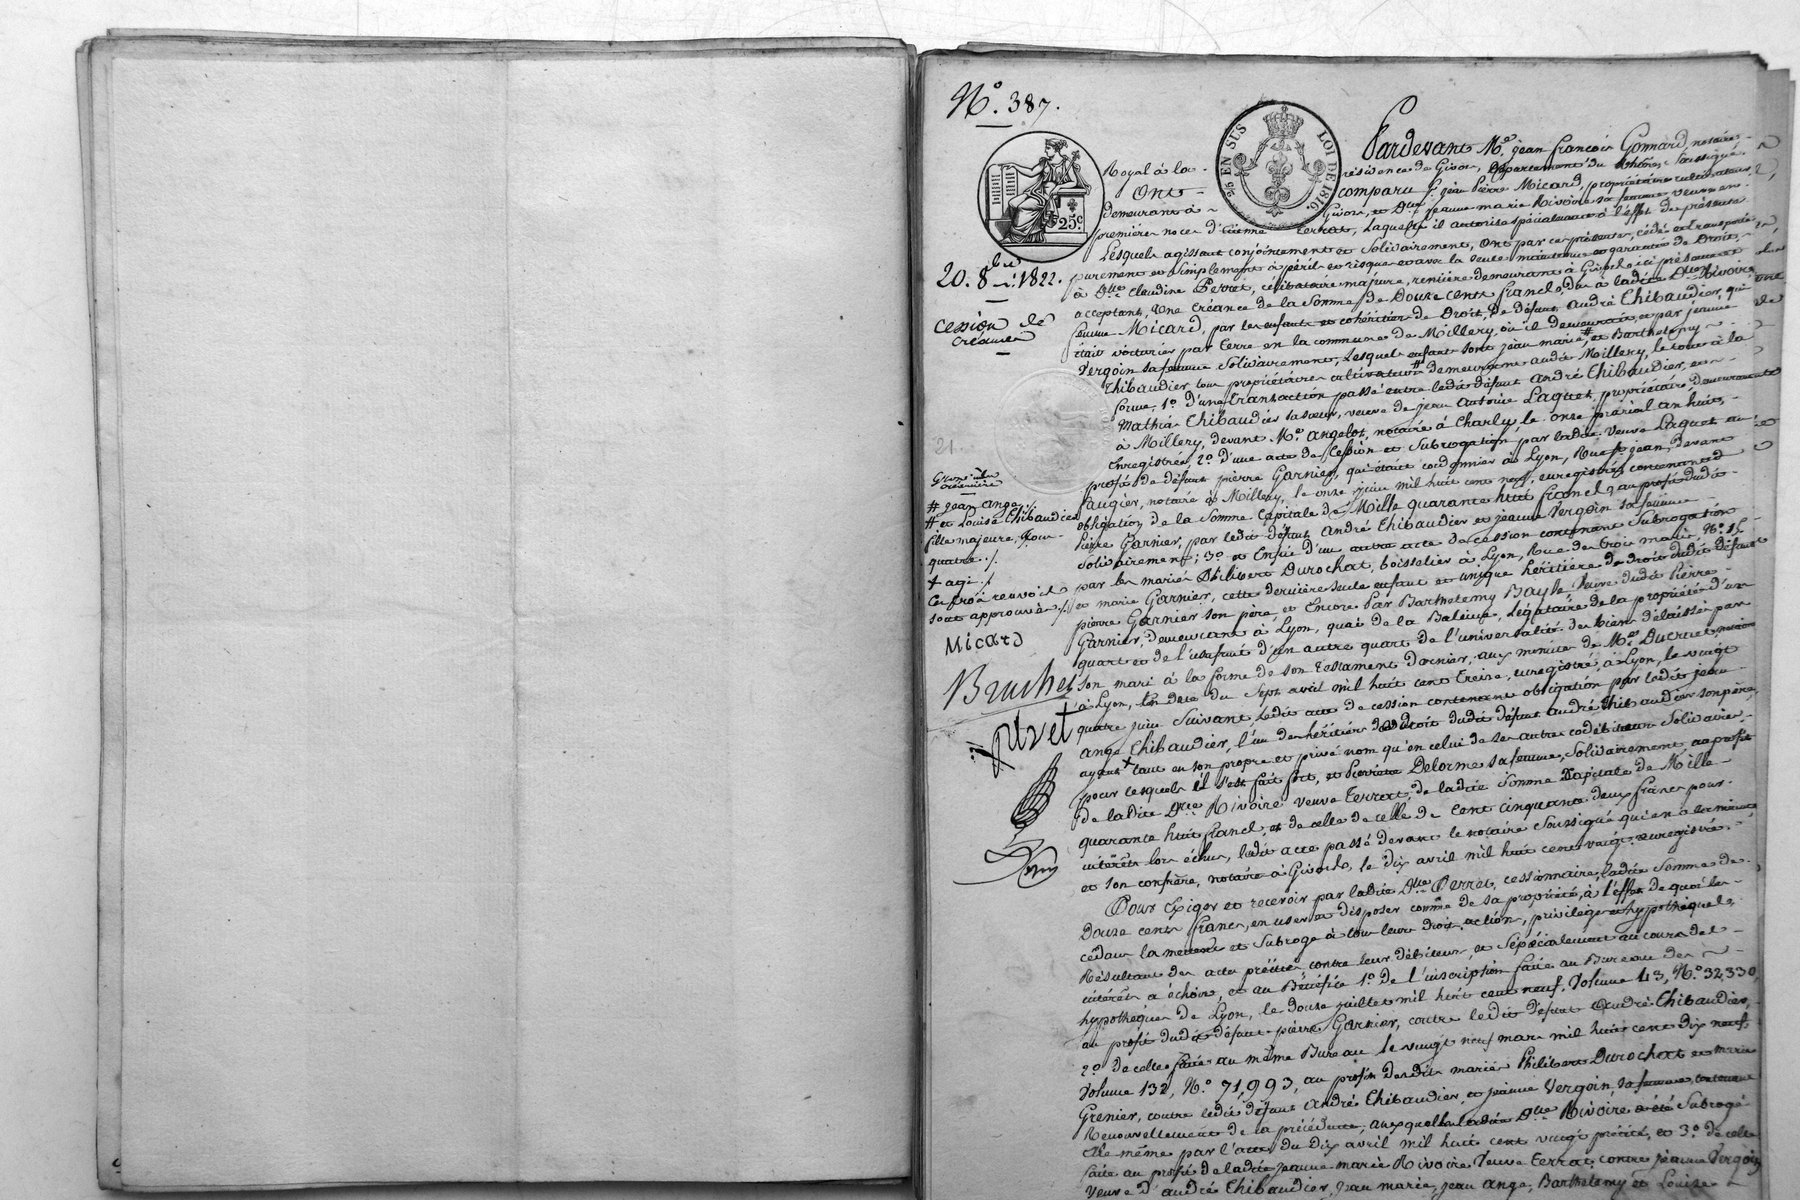 N.° 387.
25 EN SUS LOI DE 1816.
25.c
20. 8.bre 1822.
Cession de
Créance
21.
Grosse à la
créancière
# jean ange /.
# et Louise Thibaudier
fille majeure, tous
quatre ./.
+ agi ./.
Ces trois renvois
sont approuvés ./.
Micard
Bruchet
Pervet
Pardevant M.e jean françois Gonnard, notaire
Royal à la résidence de Givors, Département du Rhône, Soussigné
Ont comparu S.r jean Pierre Micard, propriétaire cultivateur,
demeurant à Givors, et D.me jeanne marie Rivoire sa femme veuve en
premières noces d'Etienne Terrat, Laquelle il autorise spécialement à l'effet des présentes
Lesquels agissant conjointement et Solidairement, Ont par ces présentes, cédé et transporté
purement et Simplement à péril et risque et avec la seule maintenue et garantie de Droit,
à D.lle Claudine Perret, célibataire majeure, rentière demeurant à Givors, ici présente et
acceptant, Une Créance de la Somme de Douze Cents francs, due à ladite D.me Rivoire
femme Micard, par les enfants et cohéritiers de Droit, de défunt André Thibaudier, qui
était voiturier par terre en la commune de Millery où il demeurait, et par jeanne
Vergoin sa femme Solidairement, Lesquels enfants sont jean marie, # et Barthelemy
Thibaudier, tous propriétaires cultivateurs # demeurant audit Millery, le tout à la
forme, 1.° d'une Transaction passée entre ledit défunt André Thibaudier, et
Mathia Thibaudier sa sœur, veuve de jean Antoine Laquet, propriétaire, demeurante
à Millery, devant M.e Angelot, notaire à Charly, le onze prairial an huit,
Enregistrée, 2.° d'une acte de Cession et Subrogation, par ladite Veuve Laquet au
profit de défunt pierre Garnier, qui était cordonnier à Lyon, Rue St jean, devant
Laugier, notaire à Millery, le onze juin mil huit cent neuf, enregistrés contenant
obligation de la Somme Capitale de Mille quarante huit francs, au profit dudit
Pierre Garnier, par ledit défunt André Thibaudier et jeanne Vergoin sa femme
Solidairement; 3.° et Enfin d'un autre acte de cession contenant Subrogation
par les mariés Philibert Durochat, boisselier à Lyon, Rue des trois maries, N.° 15
et marie Garnier, cette dernière seule enfant et unique héritière de droit dudit défunt
pierre Garnier son père et Encore Par Barthelemy Bayle Veuve dudit Pierre
Garnier, demeurant à Lyon, quai de la Baleine, Légataire de la propriété d'un
quart et de l'usufruit d'un autre quart de l'universalité des biens délaissés par
son mari à la forme de son Testament dernier, aux minutes de M.e Ducruet, notaire
à Lyon, en date du Sept avril mil huit cent treize, enregistré, à Lyon, le vingt
quatre juin Suivant Ledit acte de cession contenant obligation par ledit jean
ange Thibaudier, l'un des héritiers de droit dudit défunt andré Thibaudier son père,
ayant + tant en son propre et privé nom qu'en celui de ses autres codébiteurs Solidaires,
pour lesquels il s'est fait fort, et Pierrette Delorme sa femme, Solidairement, au profit
de ladite D.me Rivoire veuve Terrat, de ladite Somme Capitale de Mille
quarante huit francs, et de celle de celle de Cent cinquante deux francs pour
intérêts lors échus, ledit acte passé devant le notaire Soussigné qui en a la minute
et son confrère, notaire à Givors, le dix avril mil huit cent vingt, enregistré.
Pour Exiger et recevoir par ladite D.lle Perret, cessionnaire, ladite Somme de
Douze cents francs, en user et disposer comme de sa propriété, à l'effet de quoi les
cédans la mettent et Subroge à tous leurs droits, action, privilège et hypothèques,
Résultant des actes précités contre leurs débiteurs, et Spécialement au cours des
intérêts à échoir, et au Bénéfice 1.° de l'inscription faite au Bureau des
hypothèques de Lyon, le douze juillet mil huit cent neuf, Volume 43, N.° 32,330,
au profit dudit défunt pierre Garnier, contre ledit défunt André Thibaudier,
2.° de celle faite au même Bureau le vingt neuf mars mil huit cent dix neuf,
Volume 132, N.° 71,993, au profit desdits mariés Philibert Durochat et marie
Grenier, contre ledit défunt André Thibaudier, et jeanne Vergoin, sa femme, contenant
Renouvellement de la précédente, auxquelles ladite D.me Rivoire a été Subrogé
elle même par l'acte du dix avril mil huit cent vingt précité, et 3.° de celle
faite au profit de ladite jeanne marie Rivoire Veuve Terrat, contre jeanne Vergoin
Veuve d'André Thibaudier, jean marie, jean ange, Barthelemy et Louise